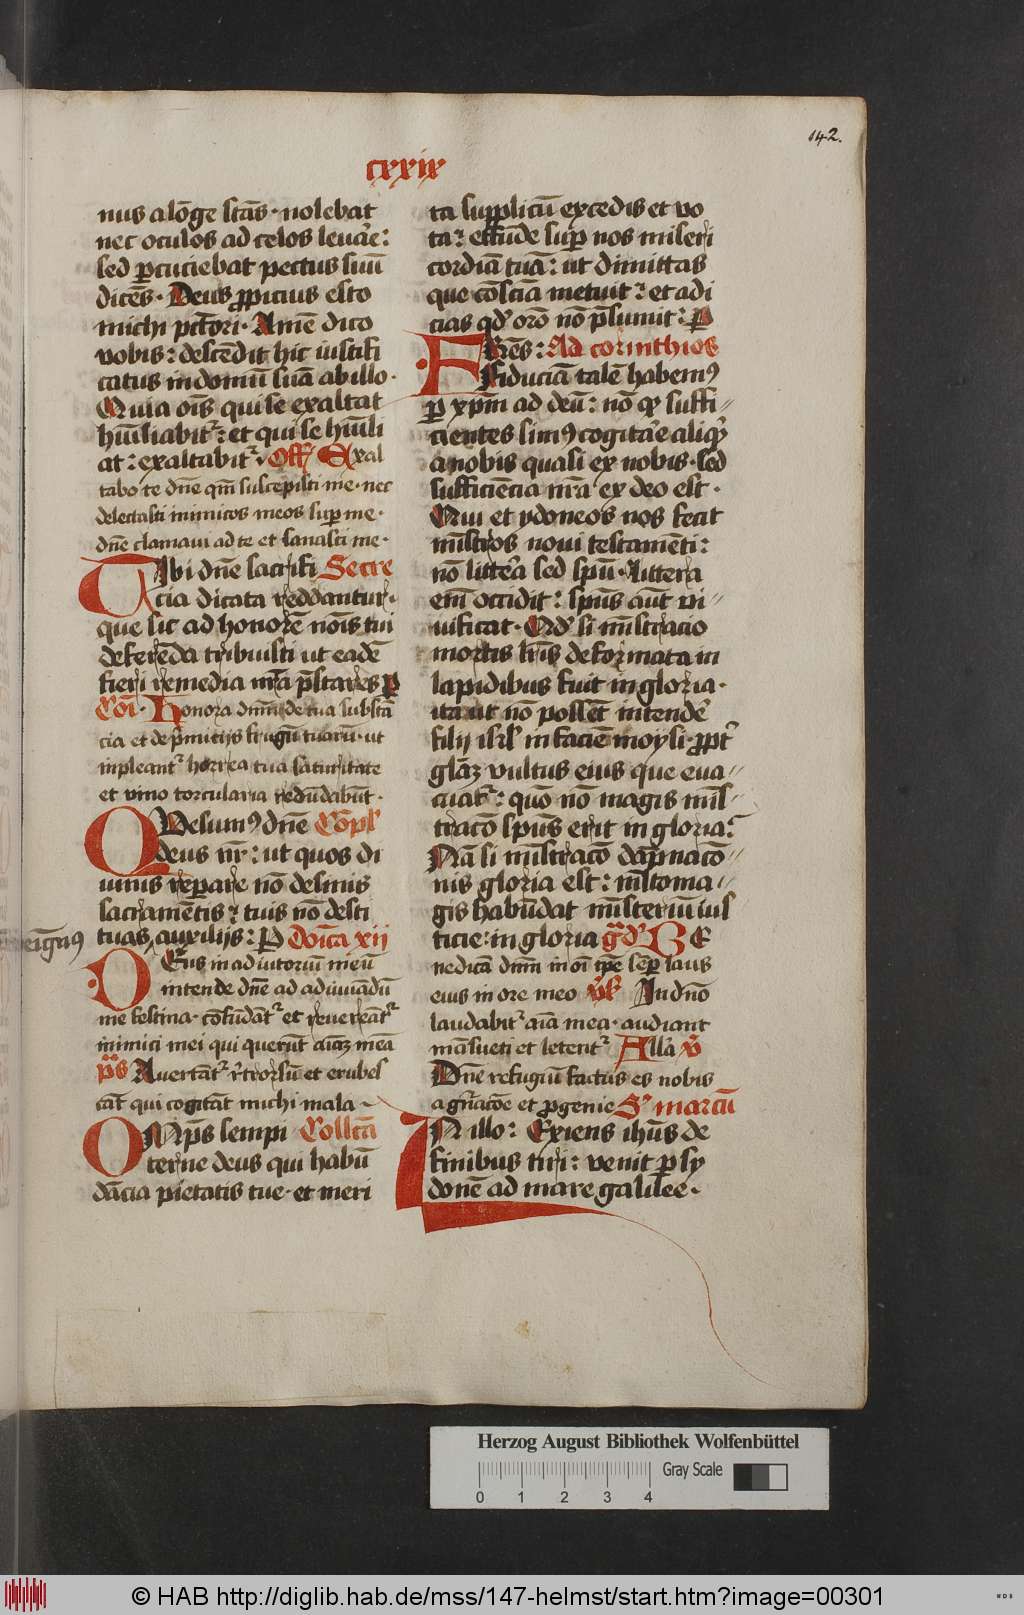 142.
cxxix
nus a lōge stās · nolebat
nec oculos ad celos leuaͤre:
sed ꝑcuciebat pectus suū
dicēs · Deus ꝓpicius esto
michi pctōri · Amē dico
vobis: descēdit hic iustifi
catus in domū suā ab illo ·
Quia oīs qui se exaltat
hūiliabitᷣ: et qui se hūili
at: exaltabitᷣ Off Exal
tabo te dn̄e qm̄ suscepisti me · nec
delectasti inimicos meos suꝑ me ·
dn̄e clamaui ad te et sanasti me ·
Tibi dn̄e sacrifi Secre
cia dicata reddantur ·
que sic ad honorē nōis tui
deferēda tribuisti ut eadē
fieri remedia nr̄a p̄stares ꝑ
Cōi · Honora dnm̄ de tua substā
cia et de p̄mitijs frugū tuarū · ut
inpleantᷣ horrea tua saturitate
et vino torcularia redūdabūt ·
Quesumꝰ dn̄e Cōpl
deus nr̄: ut quos di
uinis reparare nō desinis
sacramētis tuis nō desti
tuas auxilijs: ꝑ Doīca xij
benignꝰ
Deus in adiutoriū meū
intende dn̄e ad adiuuādū
me festina · cōfūdātᷣ et reuereātᷣ
inimici mei qui querūt aīaꝫ meā
p̄s Auertātᷣ rͥtrorsū et erubes
cāt qui cogitāt michi mala
Omp̄s sempi Collcā
terne deus qui habū
dācia pietatis tue · et meri
ta supplicū excedis et vo
ta: effūde suꝑ nos miseri
cordiā tuā: ut dimittas
que cōsciā metuit: et adi
cias qd̓ orō nō p̄sumit: ꝑ
Fres: Ad corinthios
Fiduciā talē habemꝰ
ꝑ xpm̄ ad deū: nō qͦ suffi
cientes simꝰ cogitaͤe aliqͥd
a nobis quasi ex nobis · sed
sufficiēcia nr̄a ex deo est ·
Qui et ydoneos nos fecit
mīstros noui testamēti:
nō litteͣa sed spū · littera
em̄ occidit: spūs aūt vi
uificat · Qd̓ si mīstracio
mortis lr̄is deformata in
lapidibus fuit in gloria ·
ita ut nō possēt intendeͤ
filij isrl̓ in faciē moysi · ꝓptᷣ
glāꝫ vultus eius que eua
cuatᷣ: quō nō magis mīs
tracō spūs erit in gloria:
Nā si mīstracō dāpnacō
nis gloria est: mlto ma
gis habūdat mīsteriū ius
ticie: in gloria gͣd̓ Be
nedicā dnm̄ in oī tp̄e semꝑ laus
eius in ore meo v̓s In dn̄o
laudabitᷣ aīa mea · audiant
māsueti et letentᷣ Allͣa v̓
Dn̄e refugiū factus es nobis
a gn̄acōe et ꝓgenie Sͫ marcū
In illo: Exiens ihūs de
finibus tiri: venit ꝑ sy
donē ad mare galilee ·
Herzog August Bibliothek Wolfenbüttel
Gray Scale
0 1 2 3 4
© HAB http://diglib.hab.de/mss/147-helmst/start.htm?image=00301
WDB